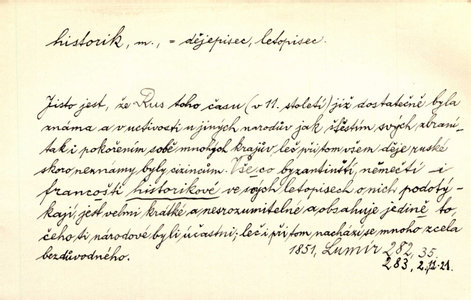 historik, m., = dějepisec, letopisec.
Jisto jest, že Rus toho času (v 11. století) již dostatečně byla
známa a v uctivosti u jiných narodův jak štěstím svých zbraní
tak i pokořením sobě mnohých krajův, leč při tom všem děje ruské
skoro neznamy byly cizincům. Vše co byzantinští, němečtí i
francoští historikové ve svých letopisech o nich podotý-
kají, jest velmi krátké a nesrozumitelné a obsahuje jedině to,
čeho ti národové byli účastni; leč i při tom nachází se mnoho zcela
bezdůvodného.
1851, Lumír 282, 35.
283, 2.